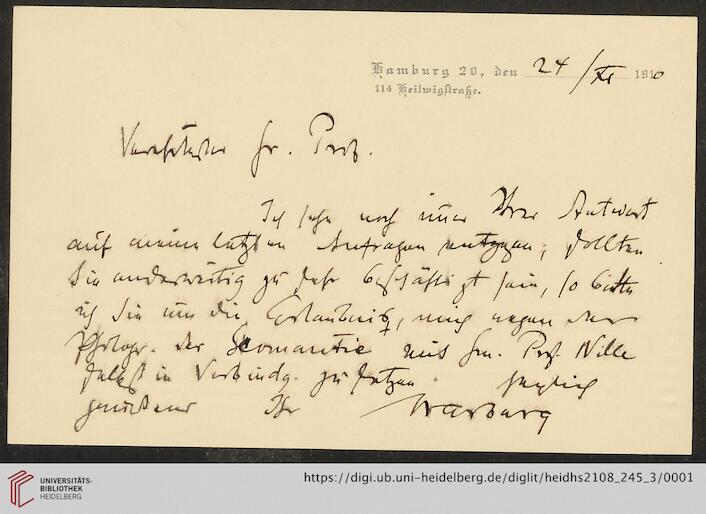 Hamburg 20, den 24/XI 1910
114 Heilwigstraße.
Verehrtester Hr. Prof.
Ich sehe noch immer Ihrer Antwort
auf meine letzten Anfragen entgegen; sollten
Sie anderweitig zu sehr beschäftigt sein, so bitte
ich Sie um die Erlaubnis, mich wegen der
Photogr. der Geomantie mit Hrn. Prof. Wille
selbst in Verbindg. zu setzen.
Ihr Warburg
UNIVERSITÄTS-
BIBLIOTHEK
HEIDELBERG
https://digi.ub.uni-heidelberg.de/diglit/heidhs2108_245_3/0001